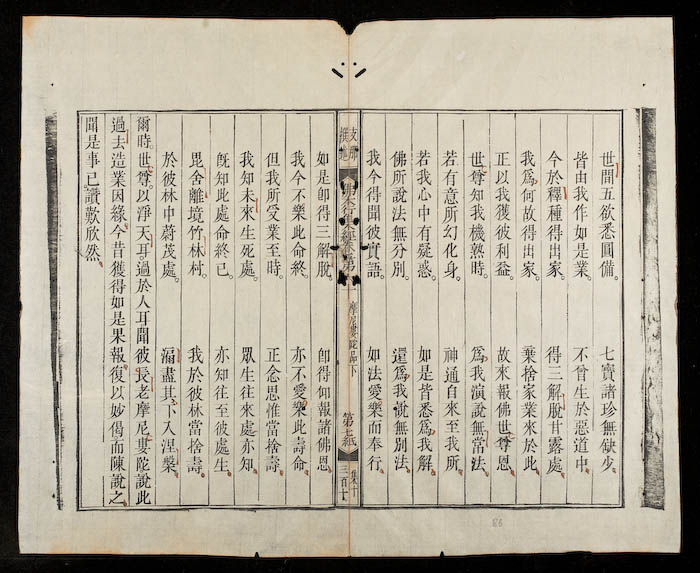 世間五欲悉圓備。　七寶諸珍無缺少。
皆由我作如是業。　不曾生於惡道中。
今於釋種得出家。　得三解脫甘露處。
我爲何故得出家。　棄捨家業來於此。
正以我獲彼利益。　故來報佛世尊恩。
世尊知我機熟時。　爲我演說無當法。
若有意所幻化身。　神通自來至我所。
若我心中有疑惑。　如是皆悉爲我解。
佛所說法無分別。　還爲我說無別法。
我今得聞彼實語。　如法愛樂而奉行。
支那撰述　集　摩尼婁陀品下　集十
如是即得三解脫。　即得仰報諸佛恩。
我今不樂此命終。　亦不愛樂此壽命。
但我所受業至時。　正念思惟當捨壽。
我知未來生死處。　眾生往來處亦知。
既知此處命終已。　亦知往至彼處生。
毘舍離境竹林村。　我於彼林當捨壽。
於彼林中蔚茂處。　漏盡其下入涅槃。
爾時。世尊。以淨天耳過於人耳聞彼長老摩尼婁陀說此
過去造業因緣。今昔獲得如是果報復以妙偈而陳說之
聞是事已讚歎欣然。
86